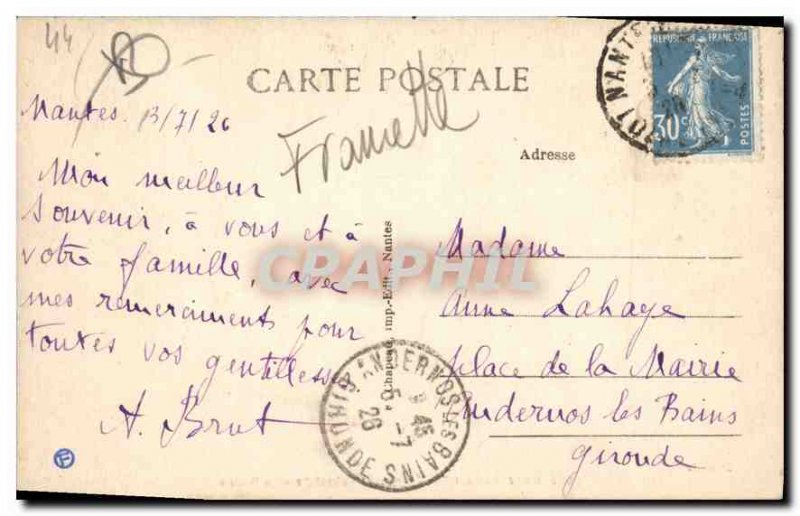 44
CARTE POSTALE
Nantes. 13/7/26
Adresse
Mon meilleur
souvenir, à vous et à
votre famille, avec
mes remerciments pour
toutes vos gentillesses
A. Brut
Madame
Anne Lahaye
place de la Mairie
Andernos les Bains
Gironde
Chapeau, Imp.-Edit., Nantes
REPUBLIQUE FRANÇAISE
30c
POSTES
NANTES
ANDERNOS-LES-BAINS
GIRONDE
45
5 -7
26
CPAPHIL
F